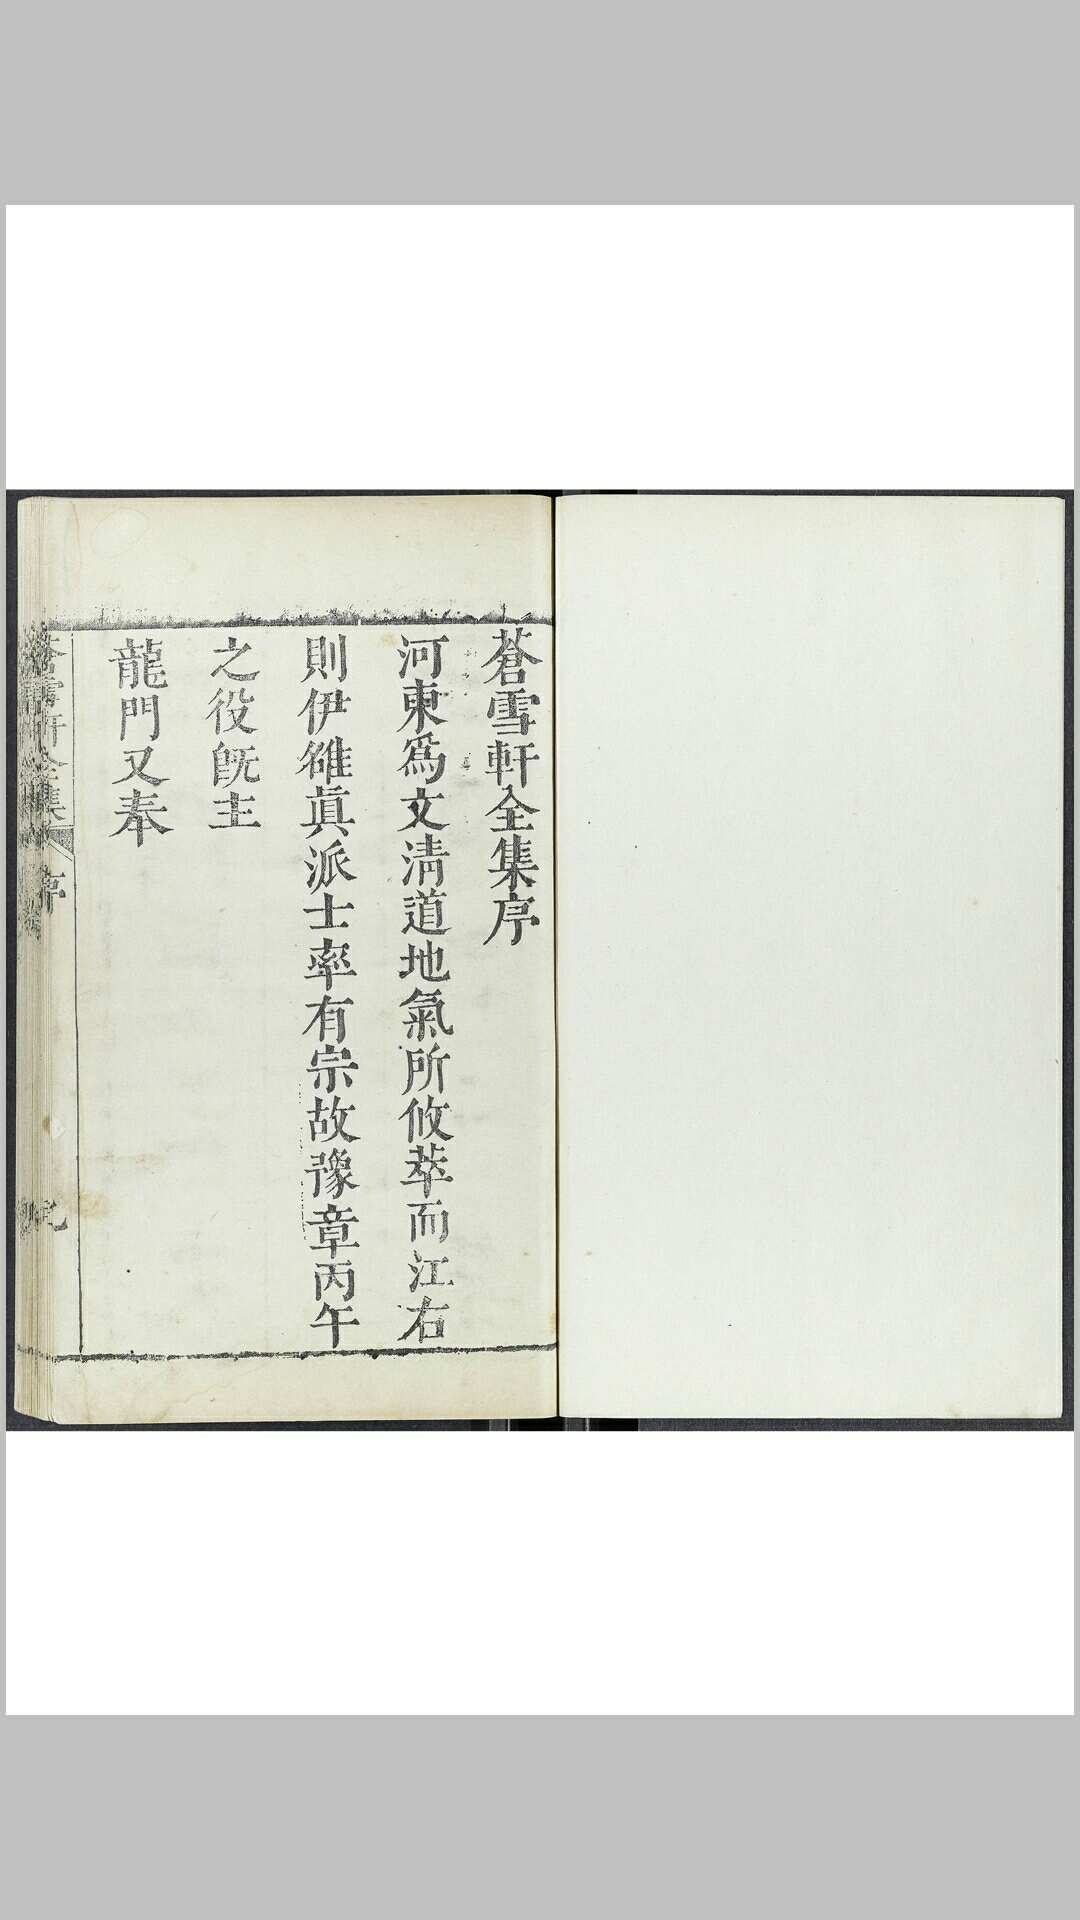 蒼雪軒全集序
河東爲文淸道地氣所攸萃而江右
則伊雒眞派士率有宗故豫章丙午
之役旣主
龍門又奉
蒼雪軒全集
序